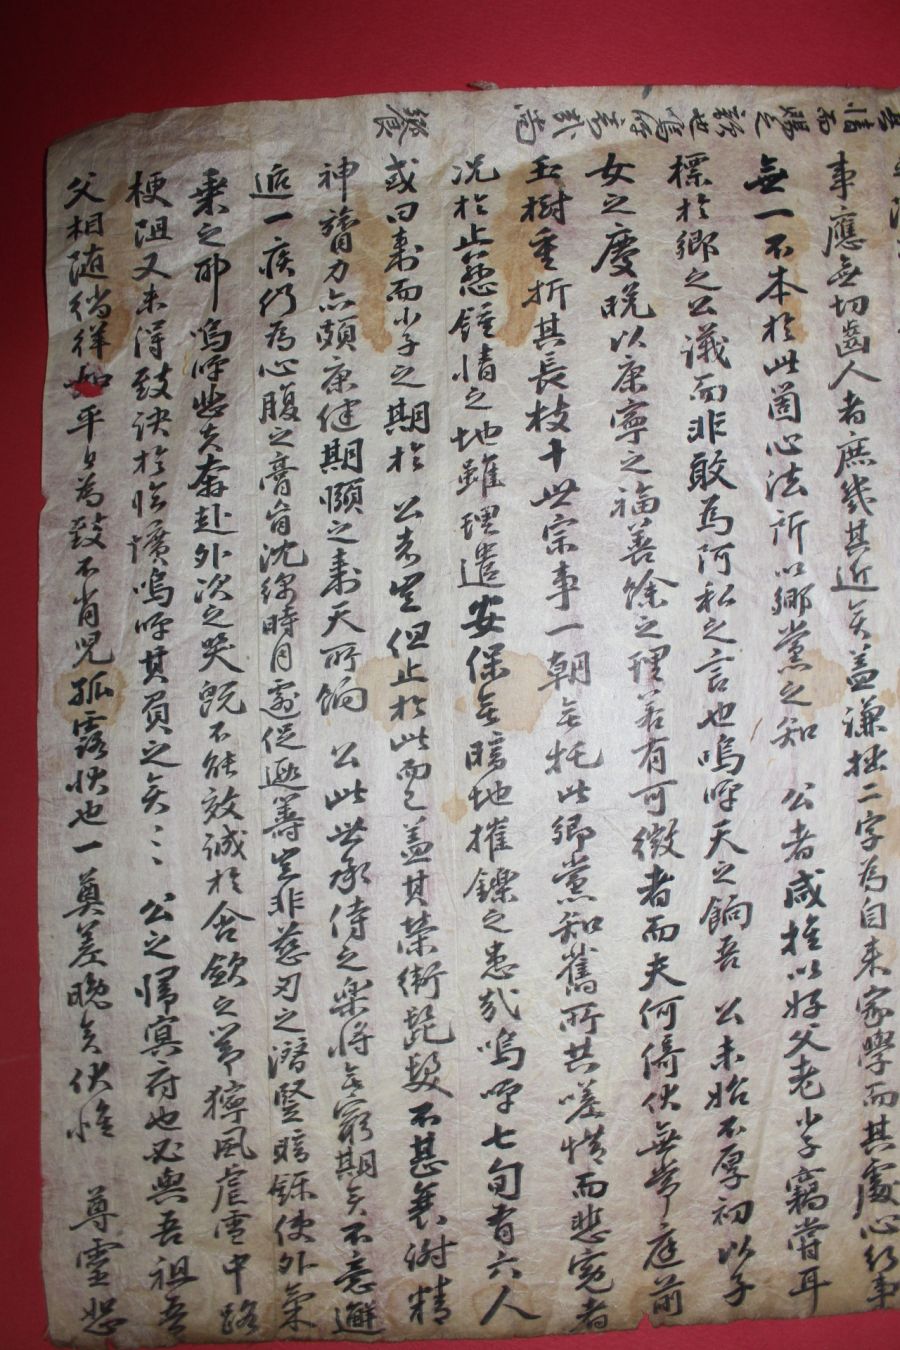 事應無切齒人者庶幾其近矣蓋謙拙二字爲自來家學而其處心行事
無一不本於此箇心法所以鄕黨之知 公者咸推以好父老小子竊嘗耳
標於鄕之公議而非敢爲阿私之言也嗚呼天之餉吾 公未始不厚初以子
女之慶晩以康寧之福善餘之理若有可徵者而夫何倚伏無常庭前
玉樹重折其長枝十世宗事一朝無托此鄕黨知舊所共嗟惜而悲寃者
況於止慈鍾情之地雖理遣安保無暗地摧鑠之患哉嗚呼七旬有六人
或曰壽而小子之期於 公者豈但止於此而已蓋其榮衛髭髮不甚衰謝精
神膂力亦頗康健期頤之壽天所餉 公此世承侍之樂將無窮期矣不意邂
逅一疾仍爲心腹之膏肓沈綿時月遽促遐籌豈非慈刃之潛竪暗鑠使外氣
乘之耶 嗚呼悲夫奔赴外次之哭旣不能效誠於含斂之節獰風虐雪中路
梗阻又未得致訣於臨壙嗚呼其負之矣〻〻 公之歸冥府也必與吾祖吾
父相隨徜徉如平日爲致不肖兒孤露狀也一奠差晩矣伏惟 尊靈恕
惜而賜之
饗